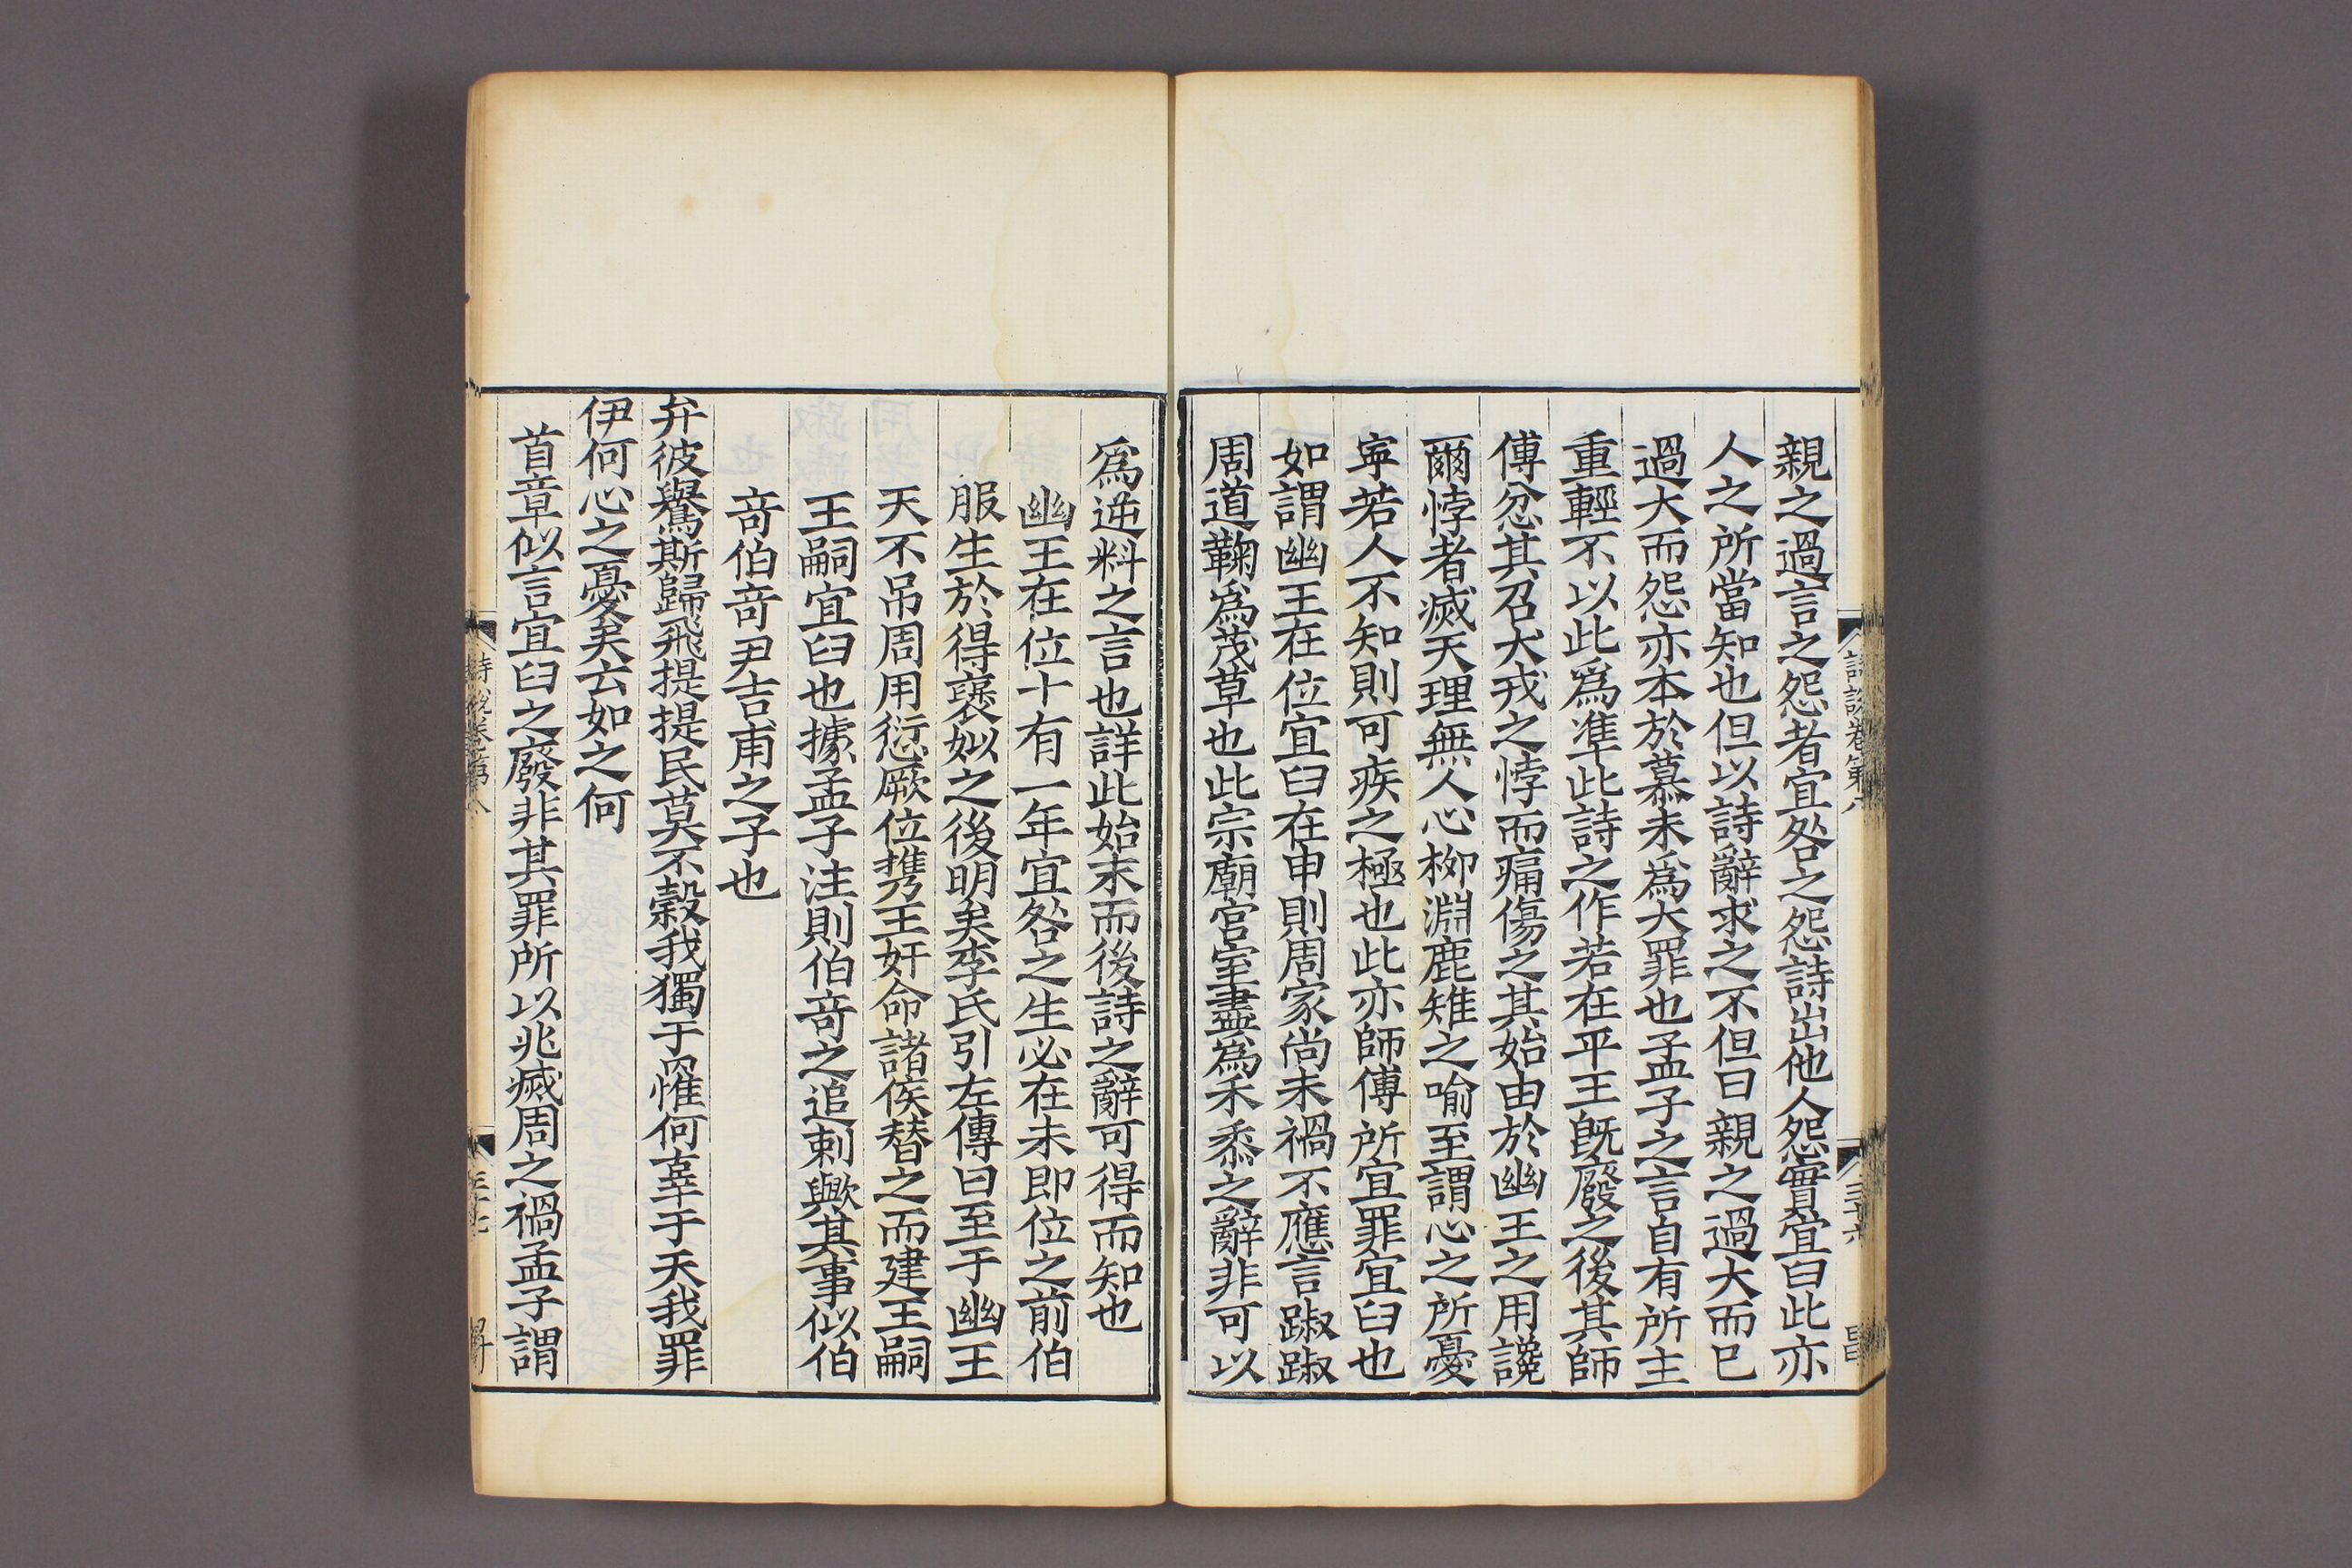 詩説卷第八
三十六
昌
親之過言之怨者宜咎之怨詩出他人怨實宜臼此亦
人之所當知也但以詩辭求之不但曰親之過大而已
過大而怨亦本於慕未爲大罪也孟子之言自有所主
重輕不以此爲準此詩之作若在平王旣廢之後其師
傅忿其召犬戎之悖而痛傷之其始由於幽王之用讒
爾悖者滅天理無人心柳淵鹿雉之喻至謂心之所憂
寜若人不知則可疾之極也此亦師傅所宜罪宜臼也
如謂幽王在位宜臼在申則周家尚未禍不應言踧踧
周道鞠爲茂草也此宗廟宮室盡爲禾黍之辭非可以
爲逆料之言也詳此始末而後詩之辭可得而知也
幽王在位十有一年宜咎之生必在未即位之前伯
服生於得襃姒之後明矣李氏引左傳曰至于幽王
天不吊周用愆厥位擕王奸命諸侯替之而建王嗣
王嗣宜臼也據孟子注則伯竒之追刺歟其事似伯
竒伯竒尹吉甫之子也
弁彼鸒斯歸飛提提民莫不穀我獨于罹何辜于天我罪
伊何心之憂矣云如之何
首章似言宜臼之廢非其罪所以兆滅周之禍孟子謂
詩説卷第八
三十七
昇